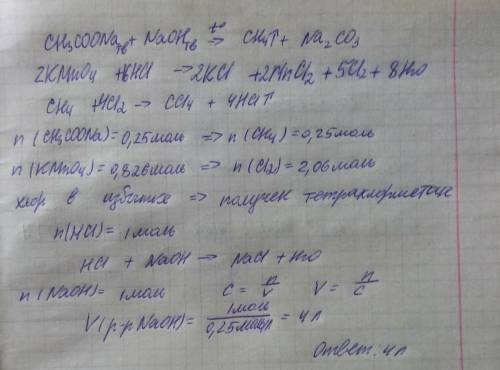 CH3COONaтв + NaOHтв t° → CH4↑ + Na2CO3
2KMnO4 + 16HCl → 2KCl + 2MnCl2 + 5Cl2 + 8H2O
CH4 + 4Cl2 → CCl4 + 4HCl↑
n (CH3COONa) = 0,25моль => n (CH4) = 0,25моль
n (KMnO4) = 0,826моль => n (Cl2) = 2,06моль
хлор в избытке => получен тетрахлорметан
n(HCl) = 1моль
HCl + NaOH → NaCl + H2O
n (NaOH) = 1моль C = n/V V = n/C
V(р-р NaOH) = 1моль/0,25моль/л = 4л
Ответ: 4л